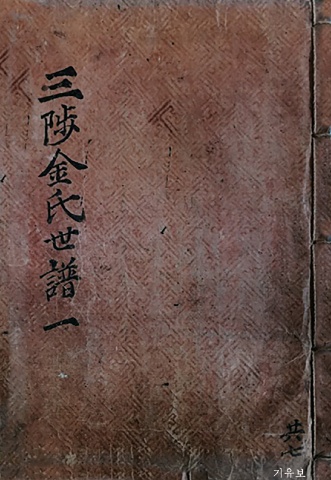 三陟金氏世譜 一
共七
기유보